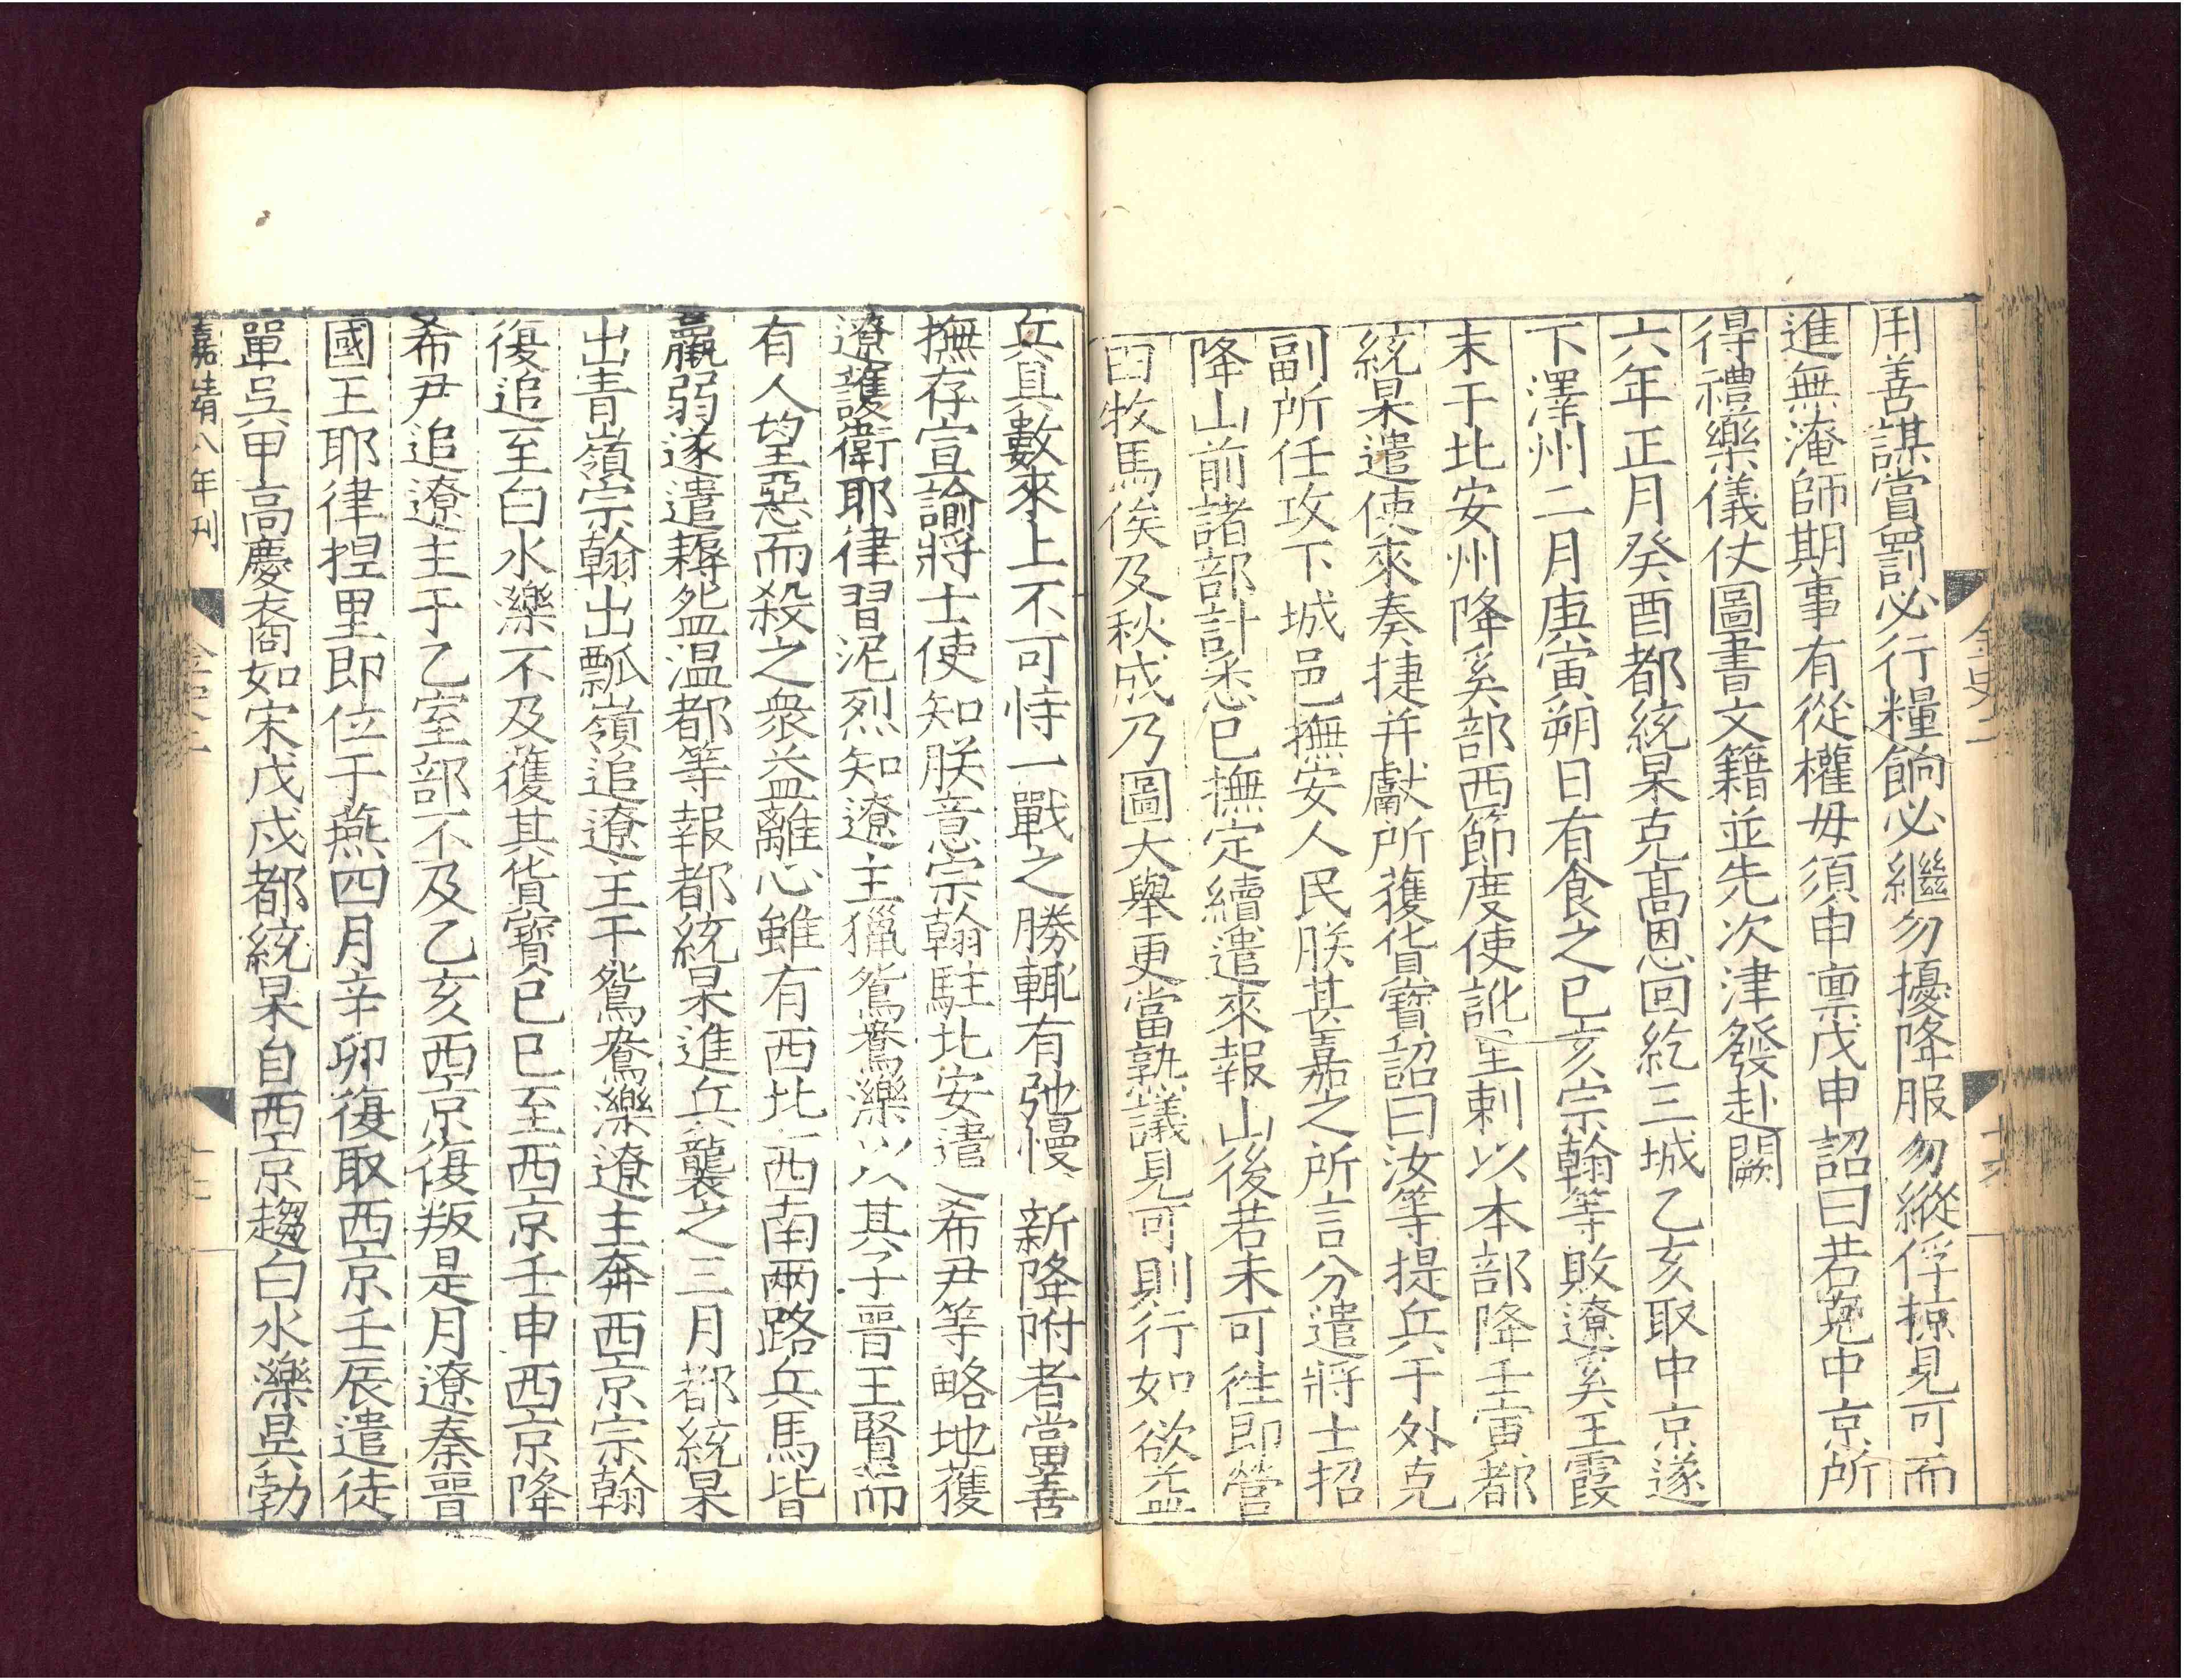 用善謀賞罰必行糧餉必繼勿擾降服勿縱俘掠見可而
進無淹師期事有從權毋須申稟戊申詔曰若克中京所
得禮樂儀仗圖書文籍並先次津發赴闕
六年正月癸酉都統杲克高恩回紇三城乙亥取中京遂
下澤州二月庚寅朔日有食之己亥宗翰等敗遼奚王霞
末于北安州降奚部西節度使訛里剌以本部降壬寅都
統杲遣使來奏捷并獻所獲貨寶詔曰汝等提兵于外克
副所任攻下城邑撫安人民朕甚嘉之所言分遣將士招
降山前諸部計悉已撫定續遣來報山後若未可徃即營
田牧馬俟及秋成乃圖大舉更當熟議見可則行如欲益
金史二
十六
兵具數來上不可恃一戰之勝輒有弛慢新降附者當善
撫存宣諭將士使知朕意宗翰駐北安遣希尹等略地獲
遼護衛耶律習泥烈知遼主獵鴛鴦濼以其子晉王賢而
有人望惡而殺之衆益離心雖有西北西南兩路兵馬皆
羸弱遂遣耨盌溫都等報都統杲進兵襲之三月都統杲
出青嶺宗翰出瓢嶺追遼主于鴛鴦濼遼主奔西京宗翰
復追至白水濼不及獲其貨寶己巳至西京壬申西京降
希尹追遼主于乙室部不及乙亥西京復叛是月遼秦晉
國王耶律捏里即位于燕四月辛卯復取西京壬辰遣徒
單吳甲高慶裔如宋戊戌都統杲自西京趨白水濼昊勃
嘉靖八年刊
金史二